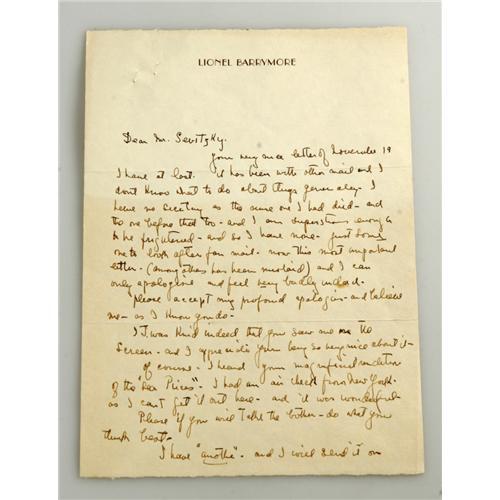 LIONEL BARRYMORE
Dear Mr. Sevitzky.
your very nice letter of November 19
I have at last. it has been with other mail and I
don't know what to do about things generaley. I
have no secretary as the same one I had died - and
the one before that too - and I am superstious enough
to be frightened - and so I have none - just
one to look after fan mail. now this most important
letter - (among others has been mislaid) and I can
only apologize and feel very badly indeed.
Please accept my profound apologies - and believe
me - as I know you do -
It was kind indeed that you saw me on the
screen - and I appreciate your being so very nice about it -
of course. I heard your magnificent rendition
of the Sea Pieces". I had an air check from New York.
as I can't get it out here - and it was wonderful -
Please if you will take the bother - do what you
think best -
I have "another" - and I will send it on